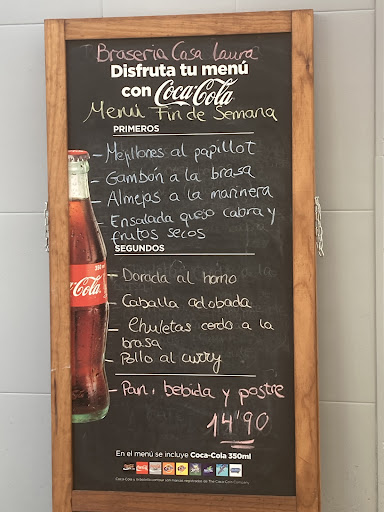 Braseria Casa Laura
Disfruta tu menú
con Coca-Cola
Menú Fin de Semana
PRIMEROS
- Mejillones al papillot
- Gambón a la brasa
- Almejas a la marinera
- Ensalada queso cabra y
frutos secos
SEGUNDOS
- Dorada al horno
- Caballa adobada
- Chuletas cerdo a la
brasa
- Pollo al curry
- Pan, bebida y postre
14'90
En el menú se incluye Coca-Cola 350ml